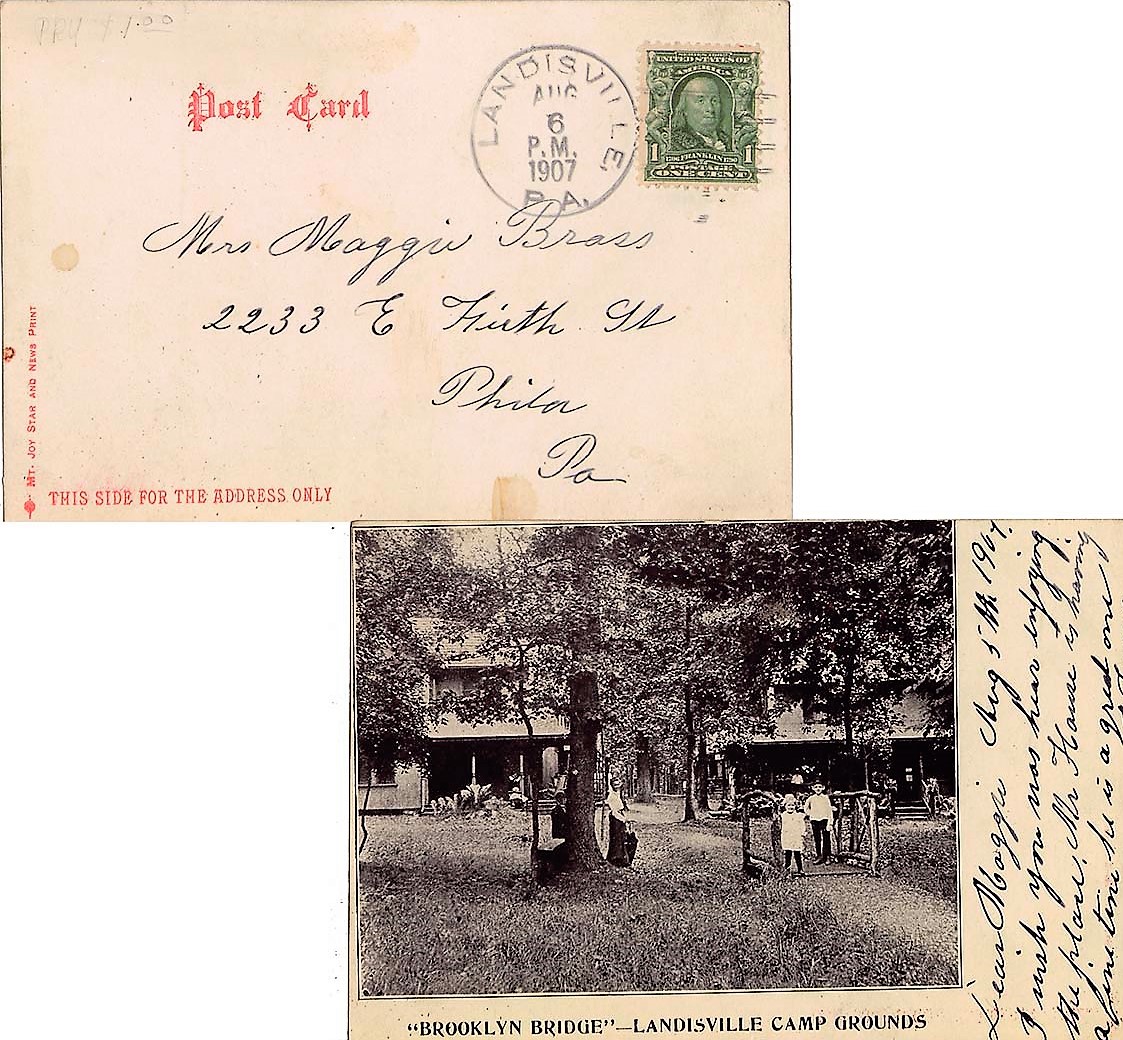 Post Card
LANDISVILLE
AUG
6
P.M.
1907
PA.
SERIES 1902
UNITED STATES OF
AMERICA
1 1706 FRANKLIN 1790 1
POSTAGE
ONE CENT
Mrs Maggie Brass
2233 E Firth St
Phila
Pa
MT. JOY STAR AND NEWS PRINT
THIS SIDE FOR THE ADDRESS ONLY
"BROOKLYN BRIDGE"—LANDISVILLE CAMP GROUNDS
Dear Maggie Aug 5th 1907.
I wish you was hear enjoying
the place, Mr House is having
a fine time he is a great one